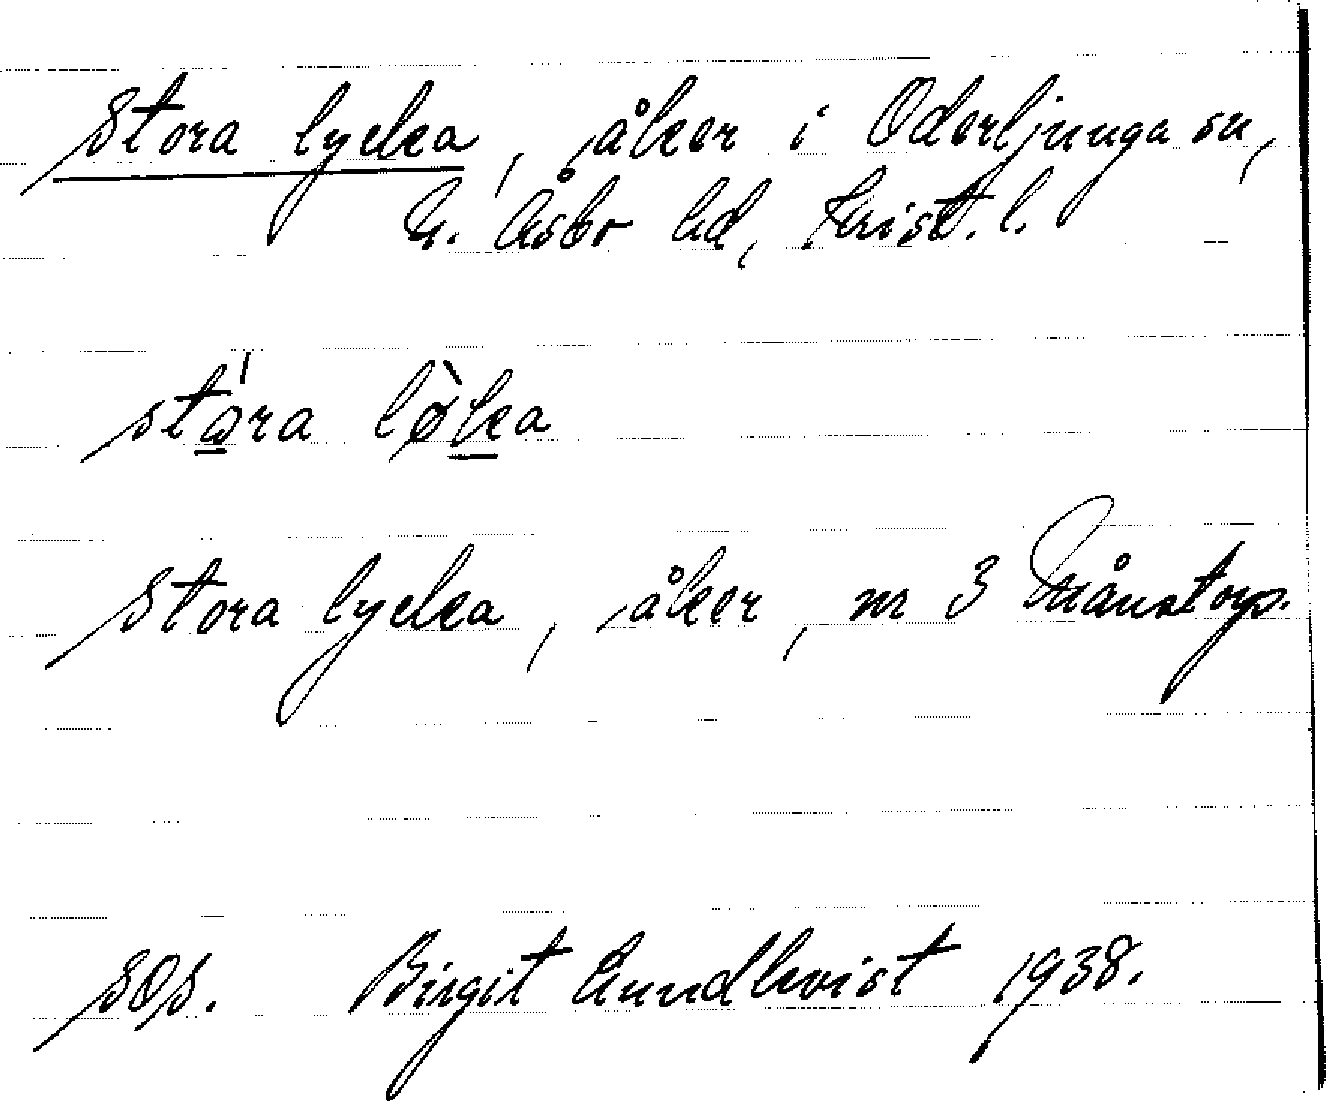 Stora lycka, åker i Oderljunga sn,
N. Åsbo hd, Krist. l.
stóra lø̀ka
Stora lycka, åker, nr 3 Månstorp.
SOS. Birgit Lundkvist 1938.